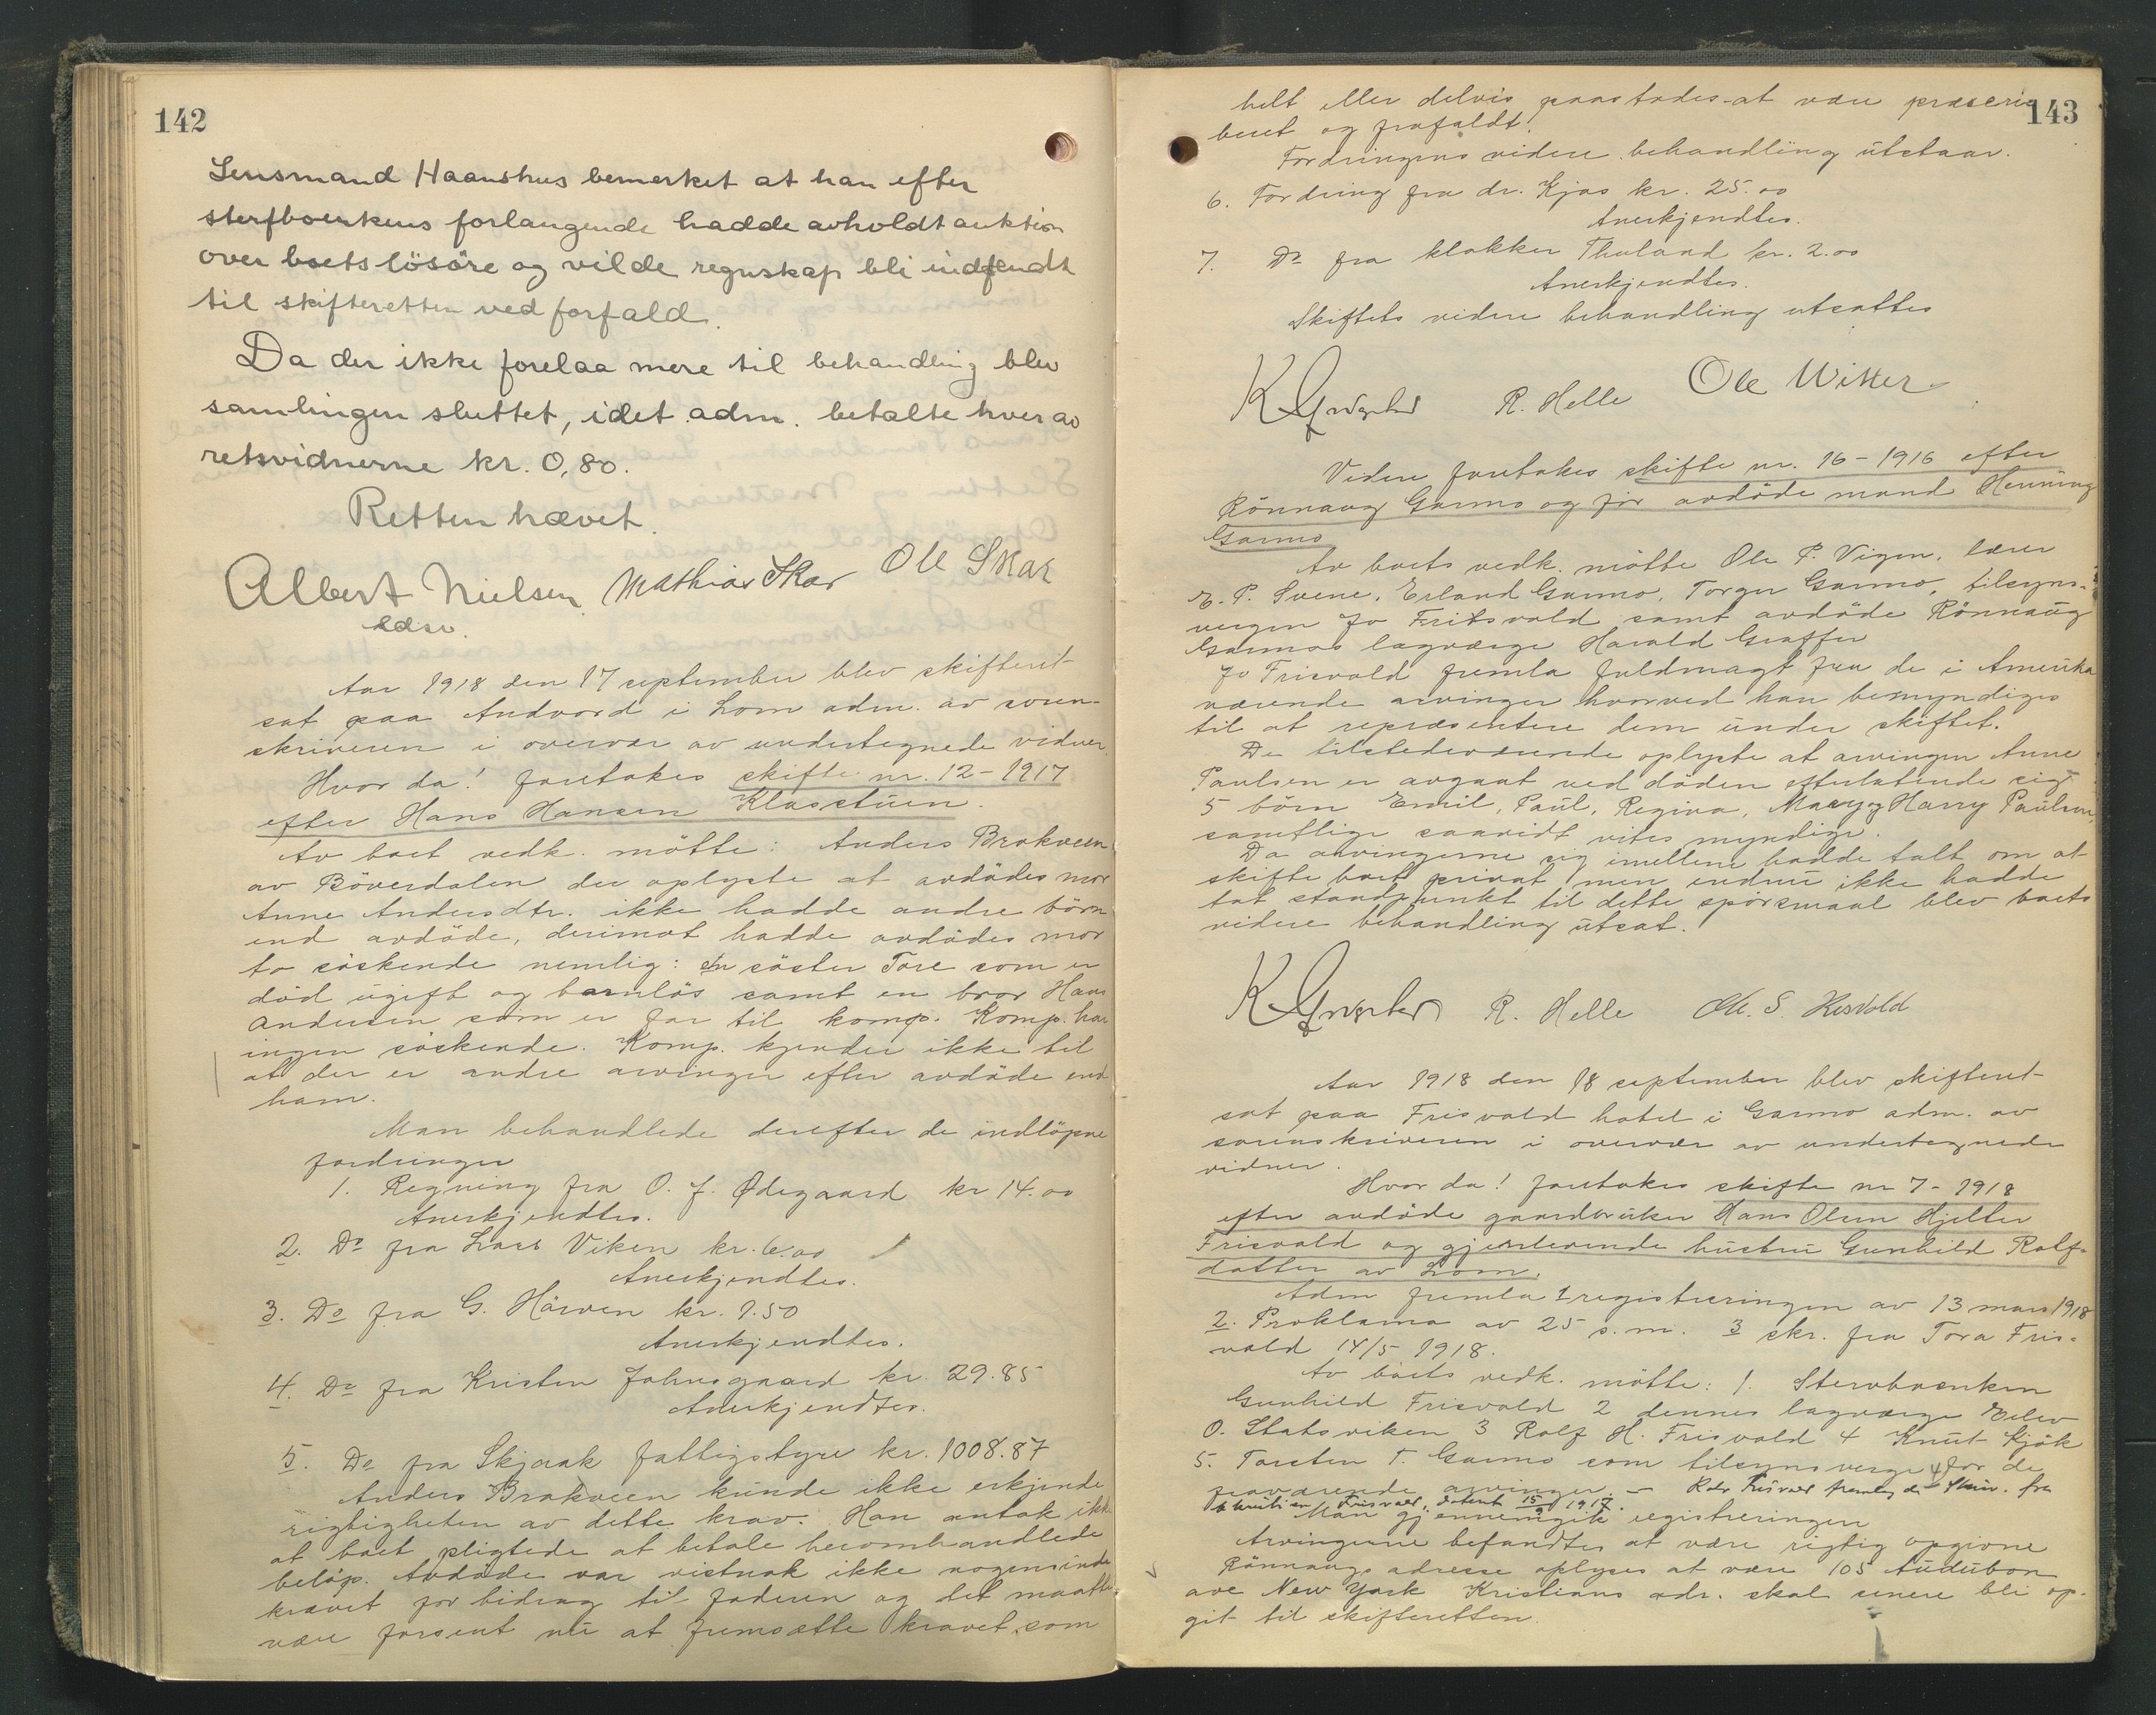 142
Lensmand Haanshus bemerket at han efter
sterfboenkens forlangende hadde avholdt auktion
over boets lösöre og vilde regnskap bli indsendt
til skifteretten ved forfald.
Da der ikke forelaa mere til behandling blev
samlingen sluttet, idet adm. betalte hver av
retsvidnerne kr. 0,80.
Retten hævet.
Albert Nielsen Mathias Skar Ole Skar
Aar 1918 den 17 september blev skifteret
sat paa Andvord i Lom adm. av soren-
skriveren i overvær av undertegnede vidner.
Hvor da! foretokes skifte nr. 12-1917
efter Hans Hansen Klasstuen.
Av boet vedk. mötte: Anders Brakveen
av Böverdalen der oplyste at avdödes mor
Anne Andersdtr. ikke hadde andre börn
end avdöde, derimot hadde avdödes mor
to söskende nemlig: en söster Tore som er
död ugift og barnlös samt en bror Hans
Andersen som er far til komp. Komp. har
ingen söskende. Komp. kjender ikke til
at der er andre arvinger efter avdöde end
ham.
Man behandlede derefter de indlöpne
fordringer
1. Regning fra O. J. Ødegaard kr 14.00
Anerkjendtes.
2. Do fra Lars Viken kr. 6.00
Anerkjendtes.
3. Do fra G. Hårven kr. 1.50
Anerkjendtes.
4. Do fra Kristen Johnsgaard kr. 29.85
Anerkjendtes.
5. Do fra Skjaak fattigstyre kr. 1008.87
Anders Brakveen kunde ikke erkjende
rigtigheten av dette krav. Han antok ikke
at boet pligtede at betale heromhandlede
belöp. Avdöde var vistnok ikke nogensinde
krævet for bidrag til faderen og det maatte
være forsent nu at fremsætte kravet, som
143
helt eller delvis paastodes at være præscri-
beret og frafaldt.
Fordringens videre behandling utstaar.
6. Fordring fra dr. Kjos kr. 25.00
Anerkjendtes.
7. Do fra klokker Thuland kr. 2.00
Anerkjendtes.
Skiftets videre behandling utsattes
R. Helle Ole Witter
Videre foretokes skifte nr. 16-1916 efter
Rönnaug Garmo og för avdöde mand Henning
Garmo
Av boets vedk. mötte Ole P. Vigen, lærer
E. P. Svene, Erland Garmo, Torger Garmo, tilsyns-
vergen Jo Fritsvold samt avdöde Rönnaug
Garmos lagværge Harald Graffer
Jo Frisvold fremla fuldmagt fra de i Amerika
værende arvinger hvorved han bemyndiges
til at repræsentere dem under skiftet.
De tilstedeværende oplyste at arvingen Anne
Paulsen er avgaat ved döden efterlatende sig
5 börn Emil, Paul, Regina, Mary og Harry Paulsen,
samtlige saavidt vites myndige.
Da arvingerne sig imellem hadde talt om at
skifte boet privat men endnu ikke hadde
tat standpunkt til dette spörsmaal blev boets
videre behandling utsat.
R. Helle Ole. S. Hesvold
Aar 1918 den 18 september blev skifteret
sat paa Frisvold hotel i Garmo adm. av
sorenskriveren i overvær av undertegnede
vidner.
Hvor da! foretokes skifte nr 7-1918
efter avdöde gaardbruker Hans Olsen Hjelter
Frisvold og gjenlevende hustru Gunhild Rolf-
datter av Lom.
Adm fremla 1 registreringen av 13 mars 1918
2. Proklama av 25 s.m. 3 skr. fra Tora Fris-
vold 14/5 1918.
Av boets vedk. mötte: 1. Stervboenken
Gunhild Frisvold 2 dennes lagværge Eilev
O. Statsviken 3 Rolf H. Frisvold 4 Knut Kjök
5. Torsten T. Garmo som tilsynsverge for de
fraværende arvinger. — Rolv Frisvold fremlag de Skriv. fra
Kristian Frisvold, datert 15/9 1917.
Man gjennemgik registreringen
Arvingerne befandtes at være rigtig opgivne
Rönnaugs adresse oplyses at være 105 Audubon
ave New York Kristians adr. skal senere bli op-
git til skifteretten.